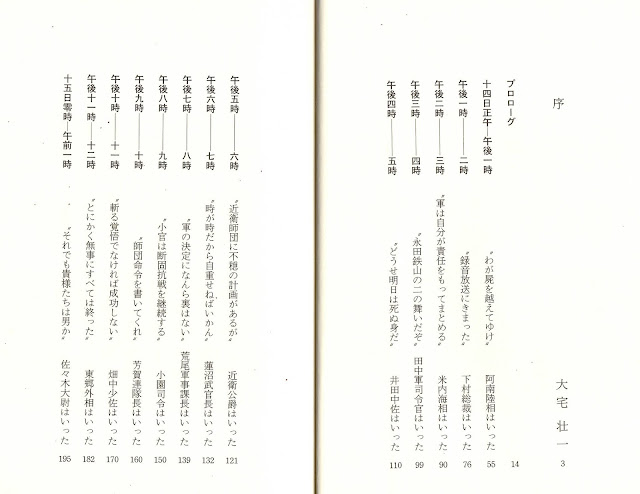 序 大宅壮一 3
プロローグ 14
十四日正午―午後一時 〝わが屍を越えてゆけ〟 阿南陸相はいった 55
午後一時――二時 〝録音放送にきまった〟 下村総裁はいった 76
午後二時――三時 〝軍は自分が責任をもってまとめる〟 米内海相はいった 90
午後三時――四時 〝永田鉄山の二の舞いだぞ〟 田中軍司令官はいった 99
午後四時――五時 〝どうせ明日は死ぬ身だ〟 井田中佐はいった 110
午後五時――六時 〝近衛師団に不穏の計画があるが〟 近衛公爵はいった 121
午後六時――七時 〝時が時だから自重せねばいかん〟 蓮沼武官長はいった 132
午後七時――八時 〝軍の決定になんら裏はない〟 荒尾軍事課長はいった 139
午後八時――九時 〝小官は断固抗戦を継続する〟 小園司令はいった 150
午後九時――十時 〝師団命令を書いてくれ〟 芳賀連隊長はいった 160
午後十時――十一時 〝斬る覚悟でなければ成功しない〟 畑中少佐はいった 170
午後十一時――十二時 〝とにかく無事にすべては終った〟 東郷外相はいった 182
十五日零時―午前一時 〝それでも貴様たちは男か〟 佐々木大尉はいった 195